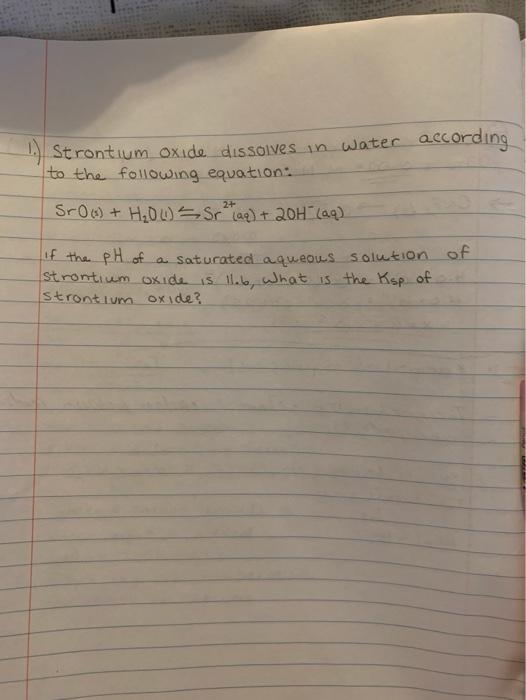 1.) Strontium oxide dissolves in water according
to the following equation:
SrO(s) + H₂O(l) ⇋ Sr²⁺(aq) + 2OH⁻(aq)
if the pH of a saturated aqueous solution of
strontium oxide is 11.6, what is the Ksp of
strontium oxide?